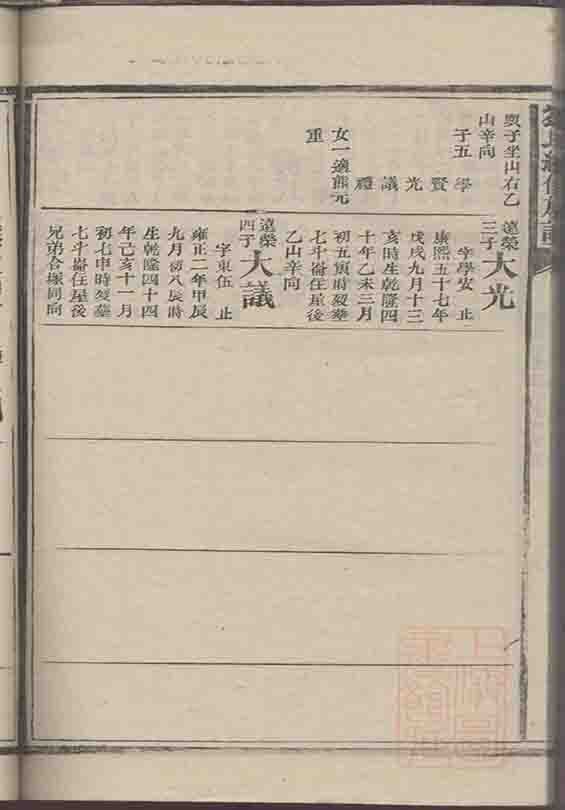 奧子坐山右乙
山辛向
子五 學
賢
光
議
禮
女一適熊元
重
遠榮
三子
大光
字學安 止
康熙五十七年
戊戌九月十三
亥時生乾隆四
十年乙未三月
初五寅時歿葬
七斗崙住屋後
乙山辛向
遠榮
四子
大議
字東伍 止
雍正二年甲辰
九月初八辰時
生乾隆四十四
年己亥十一月
初七申時歿葬
七斗崙住屋後
兄弟合塚同向